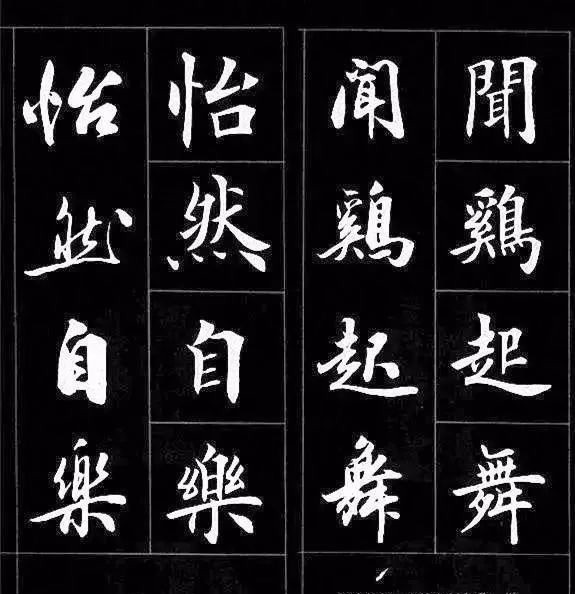 聞鷄起舞
聞鷄起舞
怡然自樂
怡然自樂